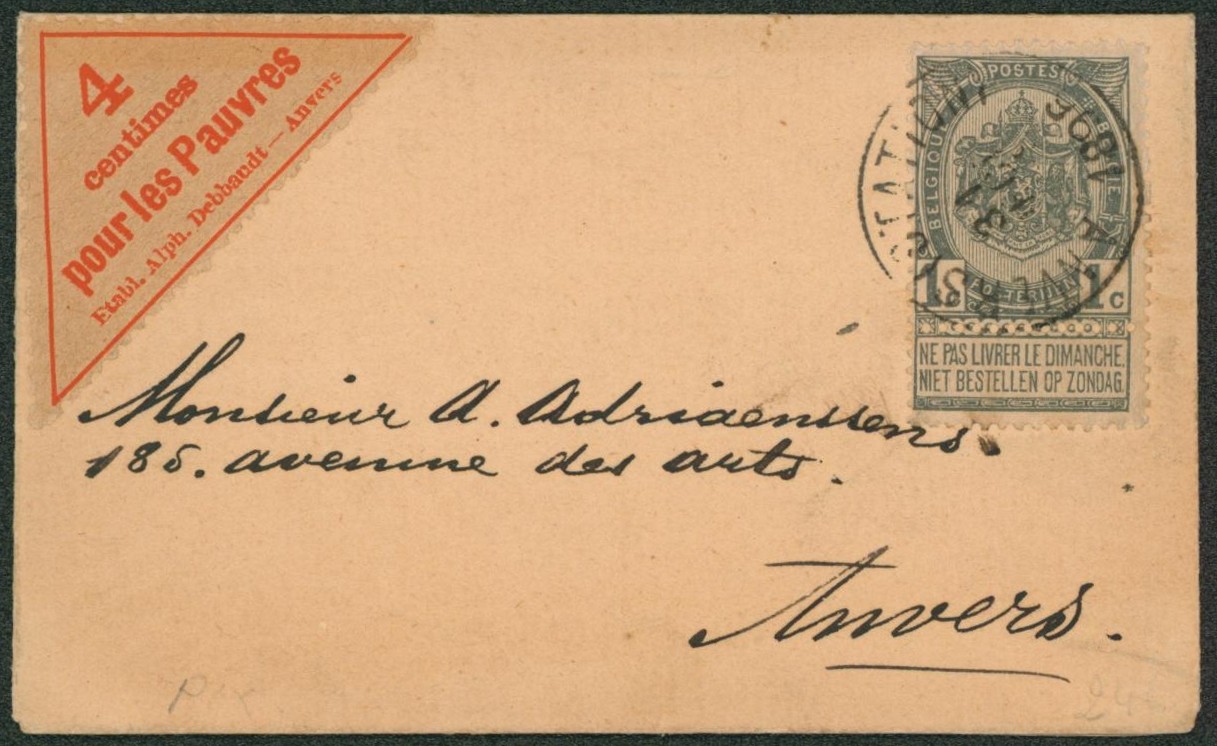 4
centimes
pour les Pauvres
Etabl. Alph. Debbaudt — Anvers
POSTES
BELGIQUE
BELGIE
1c
1c
NE PAS LIVRER LE DIMANCHE.
NIET BESTELLEN OP ZONDAG.
1896
Monsieur A. Adriaenssens.
185. avenue des arts.
Anvers.